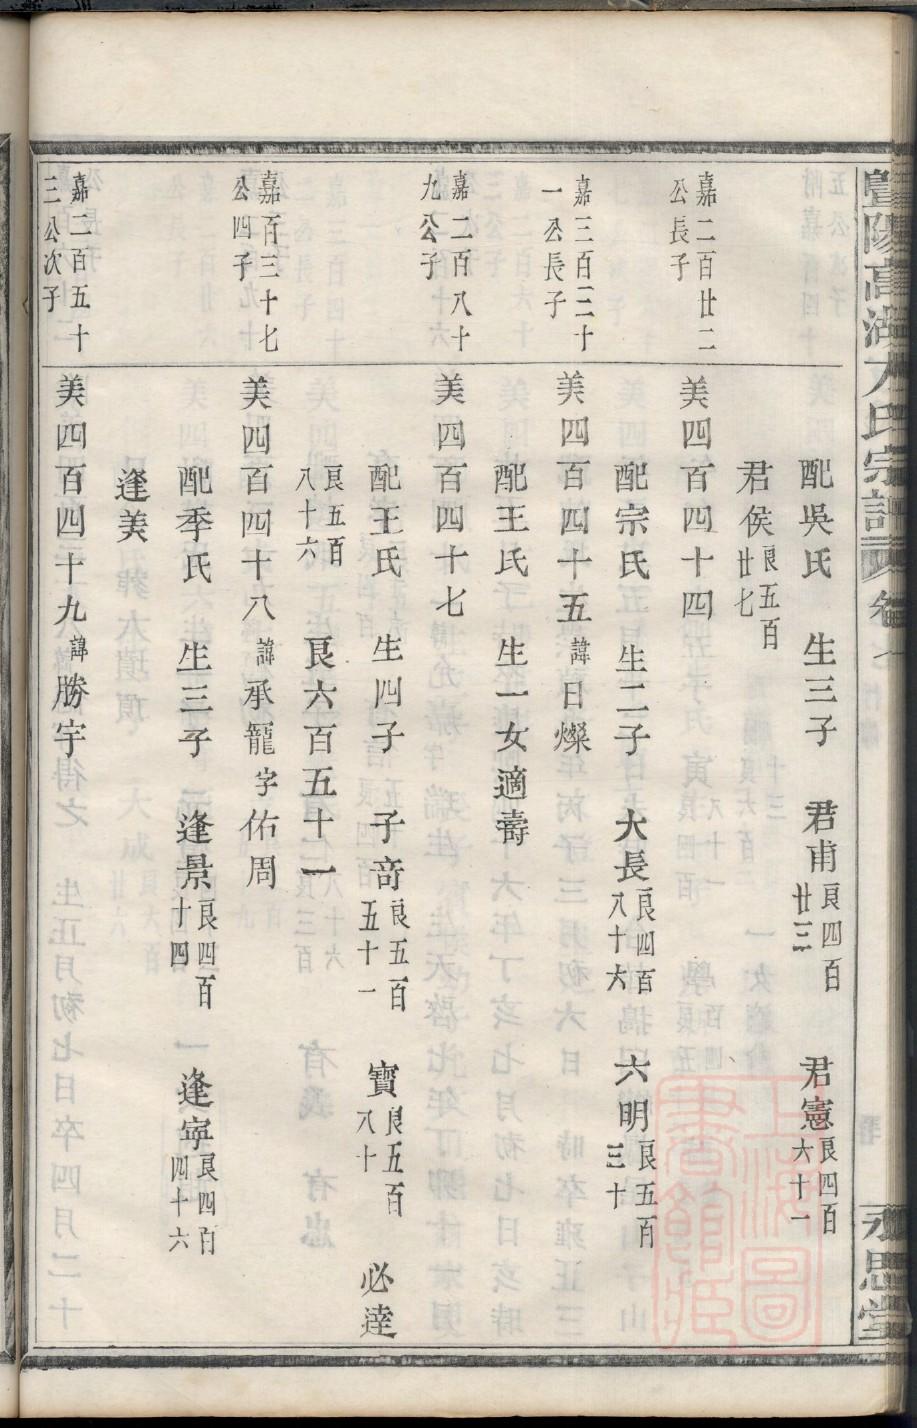 配吳氏 生三子 君甫良四百廿三 君憲良四百六十一
君侯良五百廿七
嘉二百廿二公長子 美四百四十四
配宗氏 生二子 大長良四百八十六 六明良五百三十
嘉三百三十一公長子 美四百四十五諱日燦
配王氏 生一女適壽
嘉二百八十九公子 美四百四十七
配王氏 生四子 子奇良五百五十一 寶良五百八十 必達
良五百八十六 良六百五十一
嘉百三十七公四子 美四百四十八諱承龍字佑周
配季氏 生三子 逢景良四百十四 逢寧良四百四十六
逢美
嘉二百五十三公次子 美四百四十九諱勝宇得之 生正月初七日卒四月二十
永思堂